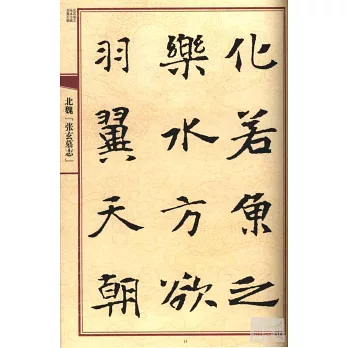 化若魚之
樂水方欲
羽翼天朝
北魏「张玄墓志」